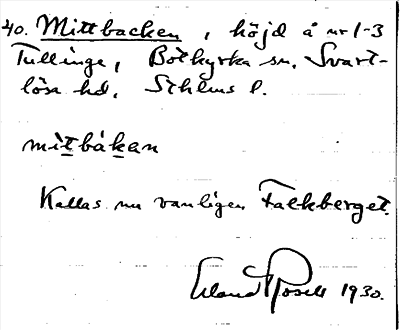 40. Mittbacken, höjd å nr 1-3
Tullinge, Botkyrka sn. Svart-
lösa hd, Sthlms l.
mitbákan
Kallas nu vanligen Falkberget.
Erland Rosell 1930.